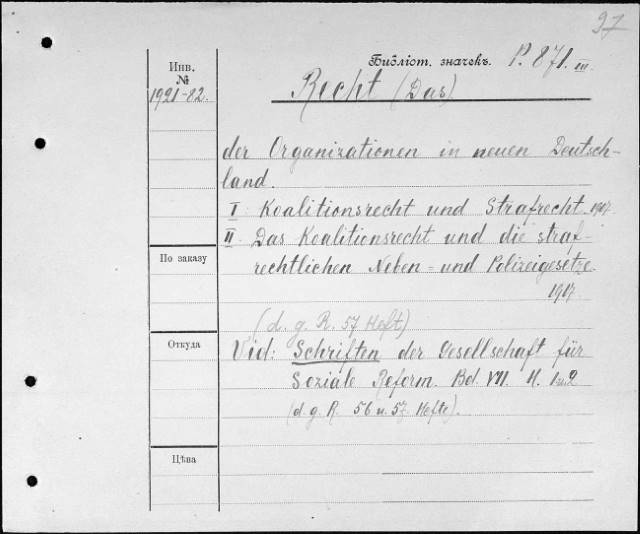 97
Инв. №
1921-82.
Библіот. значекъ. P. 871. III.
Recht (Das)
der Organizationen in neuen Deutsch-
land.
I Koalitionsrecht und Strafrecht. 1907.
II Das Koalitionsrecht und die straf-
По заказу
rechtlichen Neben- und Polizeigesetze.
1907.
(d. g. R. 57 Heft)
Откуда
Vid: Schriften der Gesellschaft für
Soziale Reform. Bd. VII. H. 1 u. 2
(d. g. R. 56 u. 57. Hefte).
Цѣна